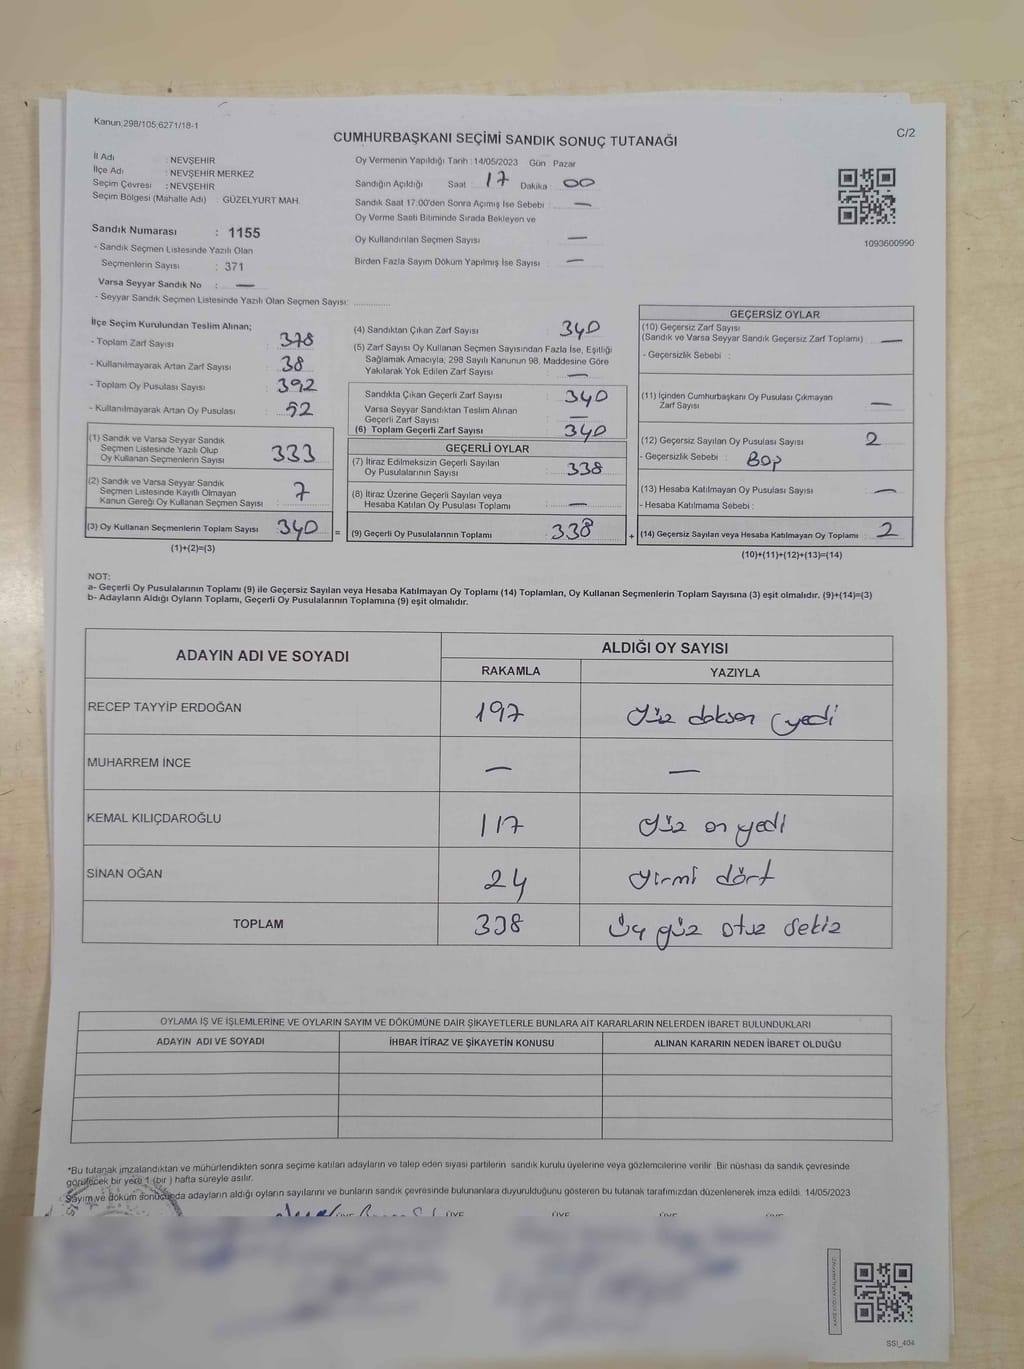 Kanun,298/105;6271/18-1
CUMHURBAŞKANI SEÇİMİ SANDIK SONUÇ TUTANAĞI
C/2
İl Adı : NEVŞEHİR
İlçe Adı : NEVŞEHİR MERKEZ
Seçim Çevresi : NEVŞEHİR
Seçim Bölgesi (Mahalle Adı) : GÜZELYURT MAH.
Sandık Numarası : 1155
- Sandık Seçmen Listesinde Yazılı Olan
Seçmenlerin Sayısı : 371
Varsa Seyyar Sandık No : —
- Seyyar Sandık Seçmen Listesinde Yazılı Olan Seçmen Sayısı: ..............
Oy Vermenin Yapıldığı Tarih : 14/05/2023 Gün : Pazar
Sandığın Açıldığı Saat : 17 Dakika 00
Sandık Saat 17:00'den Sonra Açımış İse Sebebi : —
Oy Verme Saati Bitiminde Sırada Bekleyen ve
Oy Kullandırılan Seçmen Sayısı : —
Birden Fazla Sayım Döküm Yapılmış İse Sayısı : —
1093600990
İlçe Seçim Kurulundan Teslim Alınan;
- Toplam Zarf Sayısı : 378
- Kullanılmayarak Artan Zarf Sayısı : 38
- Toplam Oy Pusulası Sayısı : 392
- Kullanılmayarak Artan Oy Pusulası : 52
(1) Sandık ve Varsa Seyyar Sandık
Seçmen Listesinde Yazılı Olup
Oy Kullanan Seçmenlerin Sayısı : 333
(2) Sandık ve Varsa Seyyar Sandık
Seçmen Listesinde Kayıtlı Olmayan
Kanun Gereği Oy Kullanan Seçmen Sayısı : 7
(3) Oy Kullanan Seçmenlerin Toplam Sayısı : 340 =
(1)+(2)=(3)
(4) Sandıktan Çıkan Zarf Sayısı : 340
(5) Zarf Sayısı Oy Kullanan Seçmen Sayısından Fazla İse, Eşitliği
Sağlamak Amacıyla; 298 Sayılı Kanunun 98. Maddesine Göre
Yakılarak Yok Edilen Zarf Sayısı : —
Sandıkta Çıkan Geçerli Zarf Sayısı : 340
Varsa Seyyar Sandıktan Teslim Alınan
Geçerli Zarf Sayısı : —
(6) Toplam Geçerli Zarf Sayısı : 340
GEÇERLİ OYLAR
(7) İtiraz Edilmeksizin Geçerli Sayılan
Oy Pusulalarının Sayısı : 338
(8) İtiraz Üzerine Geçerli Sayılan veya
Hesaba Katılan Oy Pusulası Toplamı : —
(9) Geçerli Oy Pusulalarının Toplamı : 338 +
GEÇERSİZ OYLAR
(10) Geçersiz Zarf Sayısı
(Sandık ve Varsa Seyyar Sandık Geçersiz Zarf Toplamı) : —
- Geçersizlik Sebebi :
(11) İçinden Cumhurbaşkanı Oy Pusulası Çıkmayan
Zarf Sayısı : —
(12) Geçersiz Sayılan Oy Pusulası Sayısı : 2
- Geçersizlik Sebebi : BOP
(13) Hesaba Katılmayan Oy Pusulası Sayısı : —
- Hesaba Katılmama Sebebi :
(14) Geçersiz Sayılan veya Hesaba Katılmayan Oy Toplamı : 2
(10)+(11)+(12)+(13)=(14)
NOT:
a- Geçerli Oy Pusulalarının Toplamı (9) ile Geçersiz Sayılan veya Hesaba Katılmayan Oy Toplamı (14) Toplamları, Oy Kullanan Seçmenlerin Toplam Sayısına (3) eşit olmalıdır. (9)+(14)=(3)
b- Adayların Aldığı Oyların Toplamı, Geçerli Oy Pusulalarının Toplamına (9) eşit olmalıdır.
ADAYIN ADI VE SOYADI
ALDIĞI OY SAYISI
RAKAMLA YAZIYLA
RECEP TAYYİP ERDOĞAN 197 Yüz doksan yedi
MUHARREM İNCE — —
KEMAL KILIÇDAROĞLU 117 Yüz on yedi
SİNAN OĞAN 24 Yirmi dört
TOPLAM 338 Üç yüz otuz sekiz
OYLAMA İŞ VE İŞLEMLERİNE VE OYLARIN SAYIM VE DÖKÜMÜNE DAİR ŞİKAYETLERLE BUNLARA AİT KARARLARIN NELERDEN İBARET BULUNDUKLARI
ADAYIN ADI VE SOYADI İHBAR İTİRAZ VE ŞİKAYETİN KONUSU ALINAN KARARIN NEDEN İBARET OLDUĞU
*Bu tutanak imzalandıktan ve mühürlendikten sonra seçime katılan adayların ve talep eden siyasi partilerin sandık kurulu üyelerine veya gözlemcilerine verilir .Bir nüshası da sandık çevresinde
görülecek bir yere 1 (bir ) hafta süreyle asılır.
Sayım ve döküm sonucunda adayların aldığı oyların sayılarını ve bunların sandık çevresinde bulunanlara duyurulduğunu gösteren bu tutanak tarafımızdan düzenlenerek imza edildi. 14/05/2023
ÜYE ÜYE ÜYE ÜYE
SSI_404